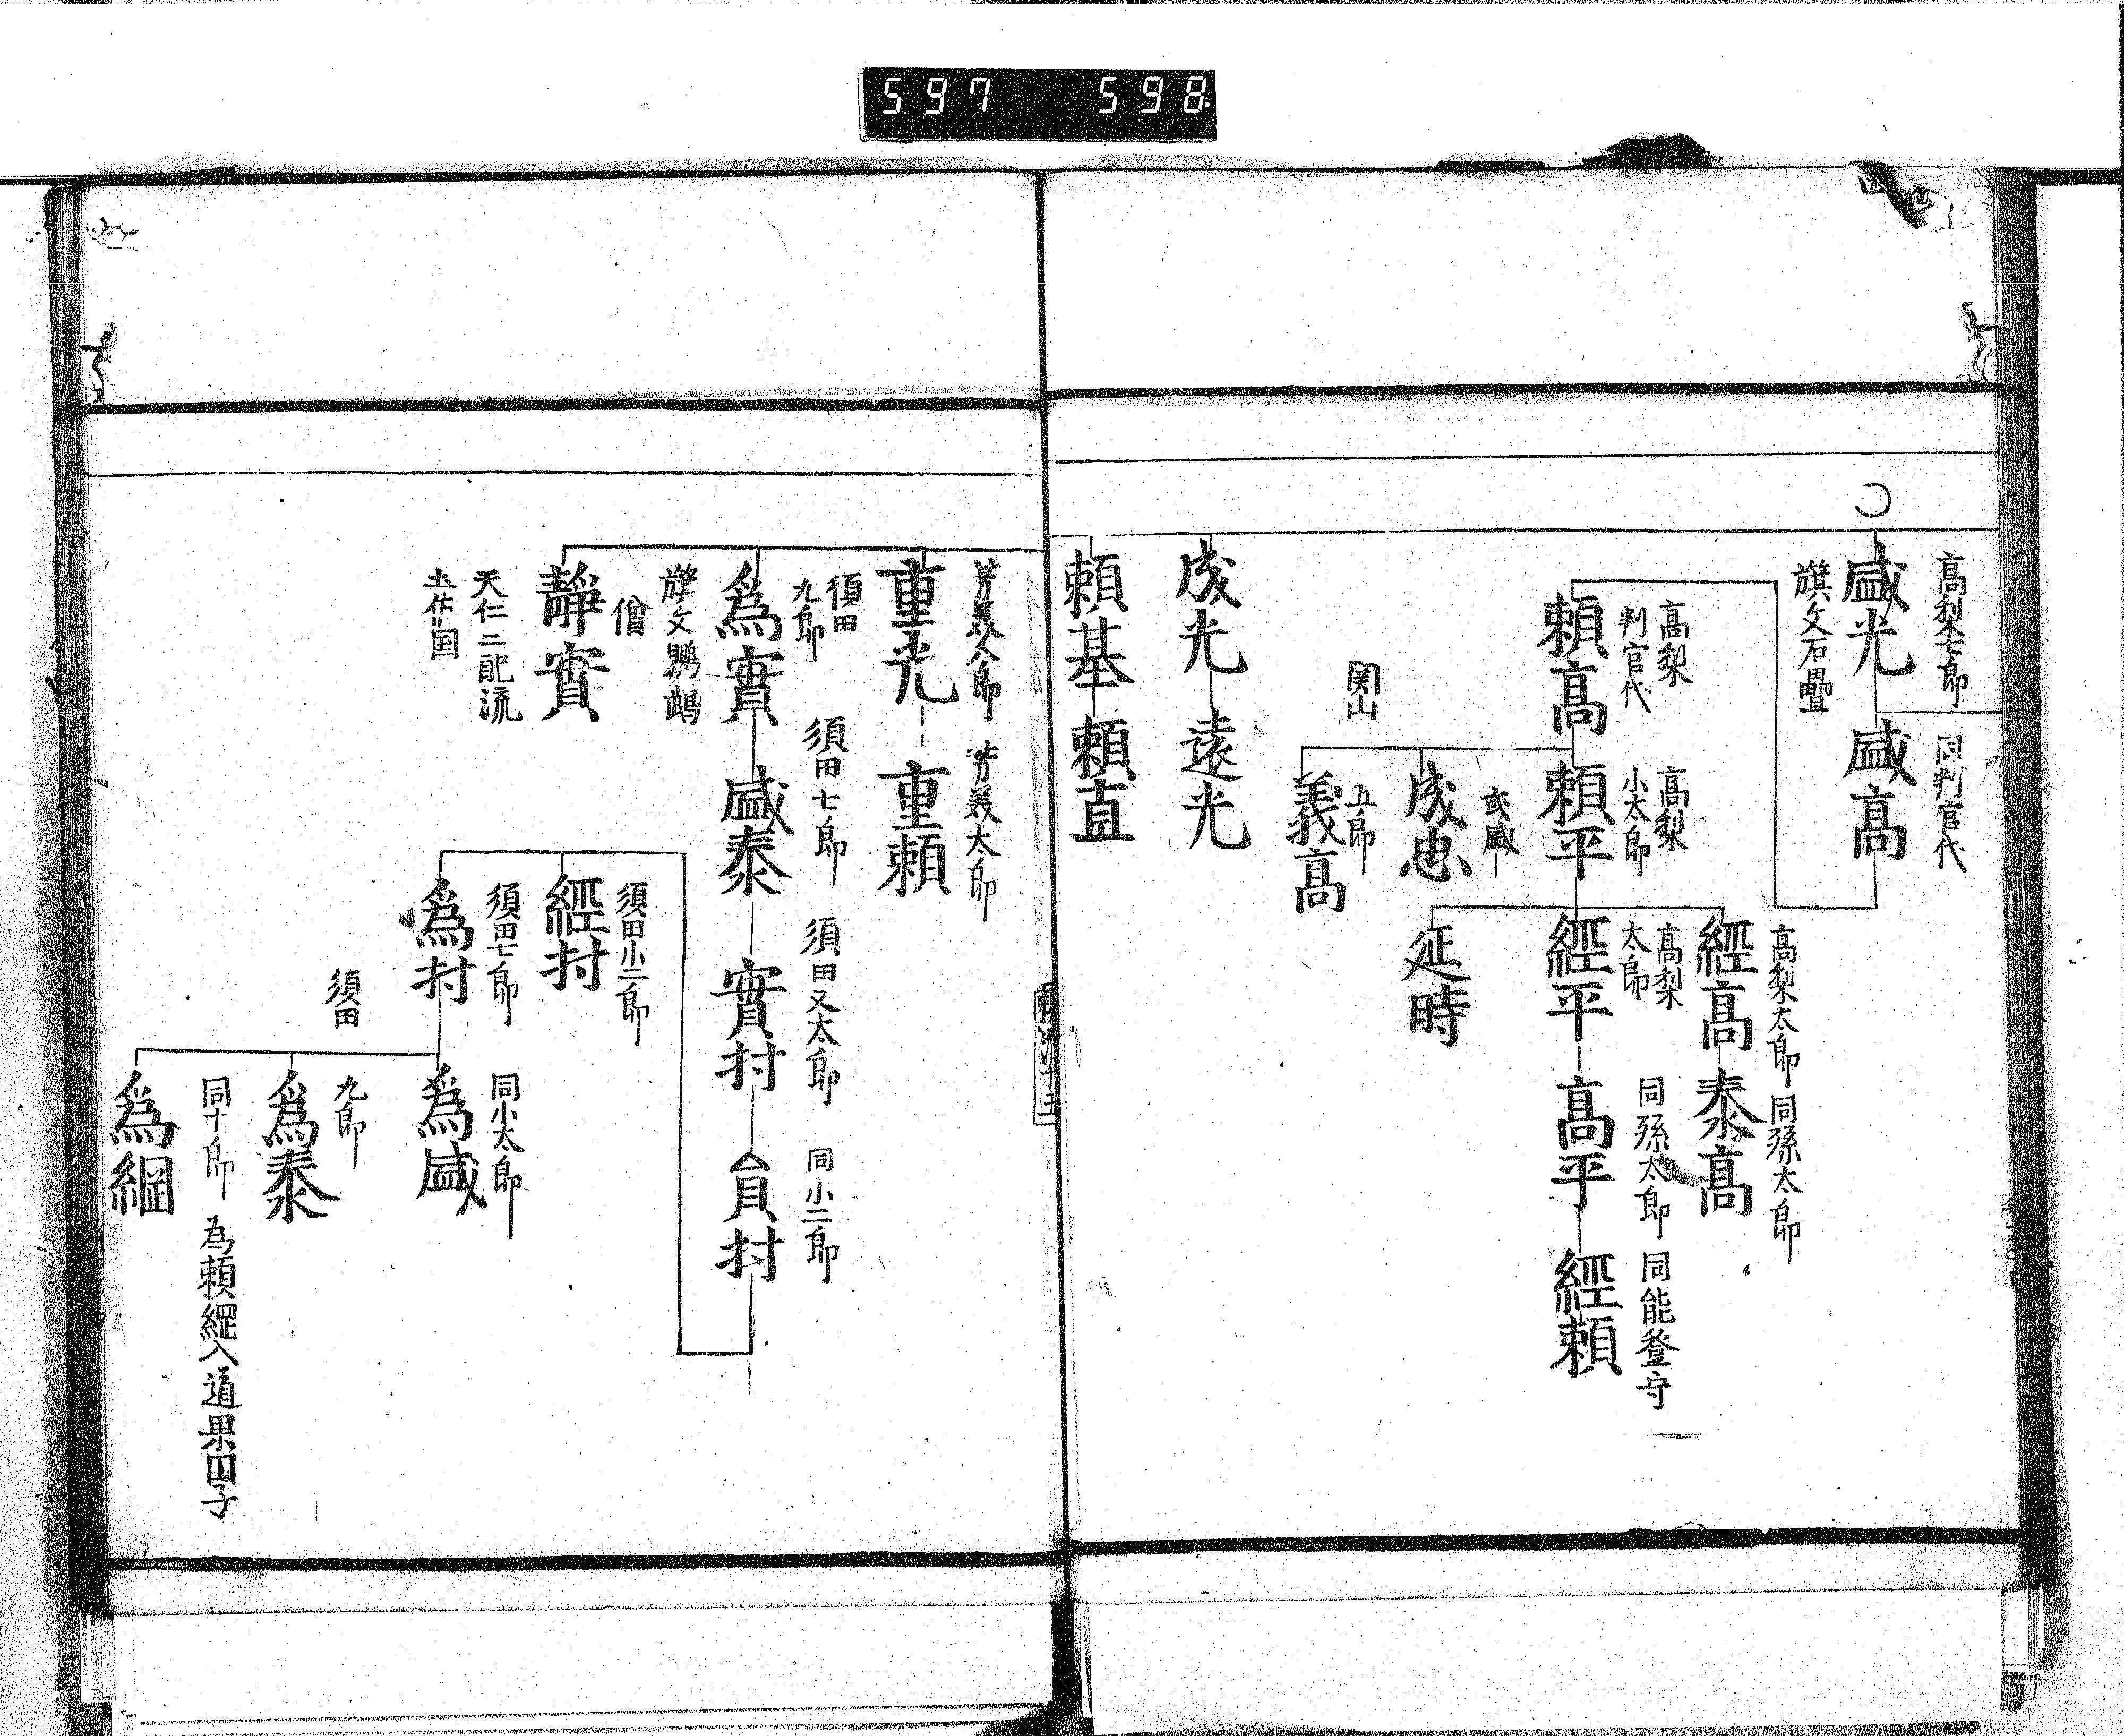 597 598
高梨七郎
同判官代
盛光
盛高
旗文石畳
高梨
判官代
頼高
高梨
小太郎
頼平
高梨太郎
同孫太郎
經高
泰高
高梨
太郎
同孫太郎
同能登守
經平
高平
經頼
延時
或盛
成忠
関山
五郎
義高
成光
遠光
頼基
頼直
芳美八郎
芳美太郎
重光
重頼
須田
九郎
須田七郎
須田又太郎
同小二郎
為實
盛泰
實村
員村
旗文
僧
靜實
天仁二配流
土佐国
須田小二郎
經村
須田七郎
同小太郎
為村
為盛
須田
九郎
為泰
同十郎 為頼綱入道果円子
為綱